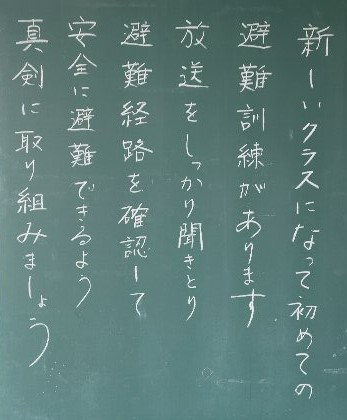 新しいクラスになって初めての
避難訓練があります
放送をしっかり聞きとり
避難経路を確認して
安全に避難できるよう
真剣に取り組みましょう